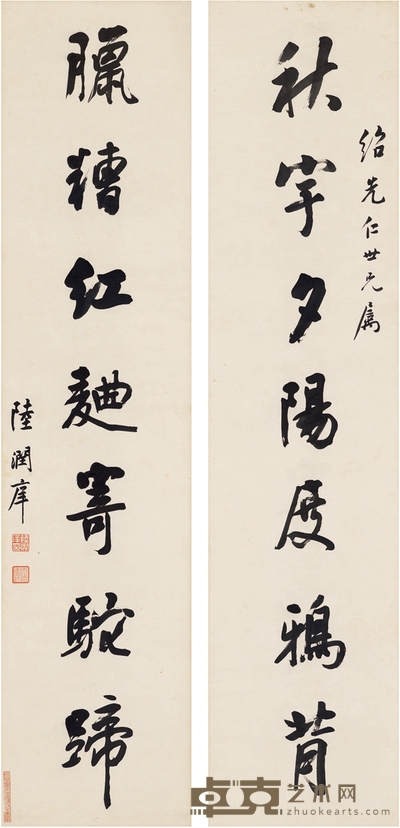 紹先仁世兄屬
秋宇夕陽度鴉背
臘糟紅麯寄駝蹄
陸潤庠
卓克艺术网
zhuokearts.com